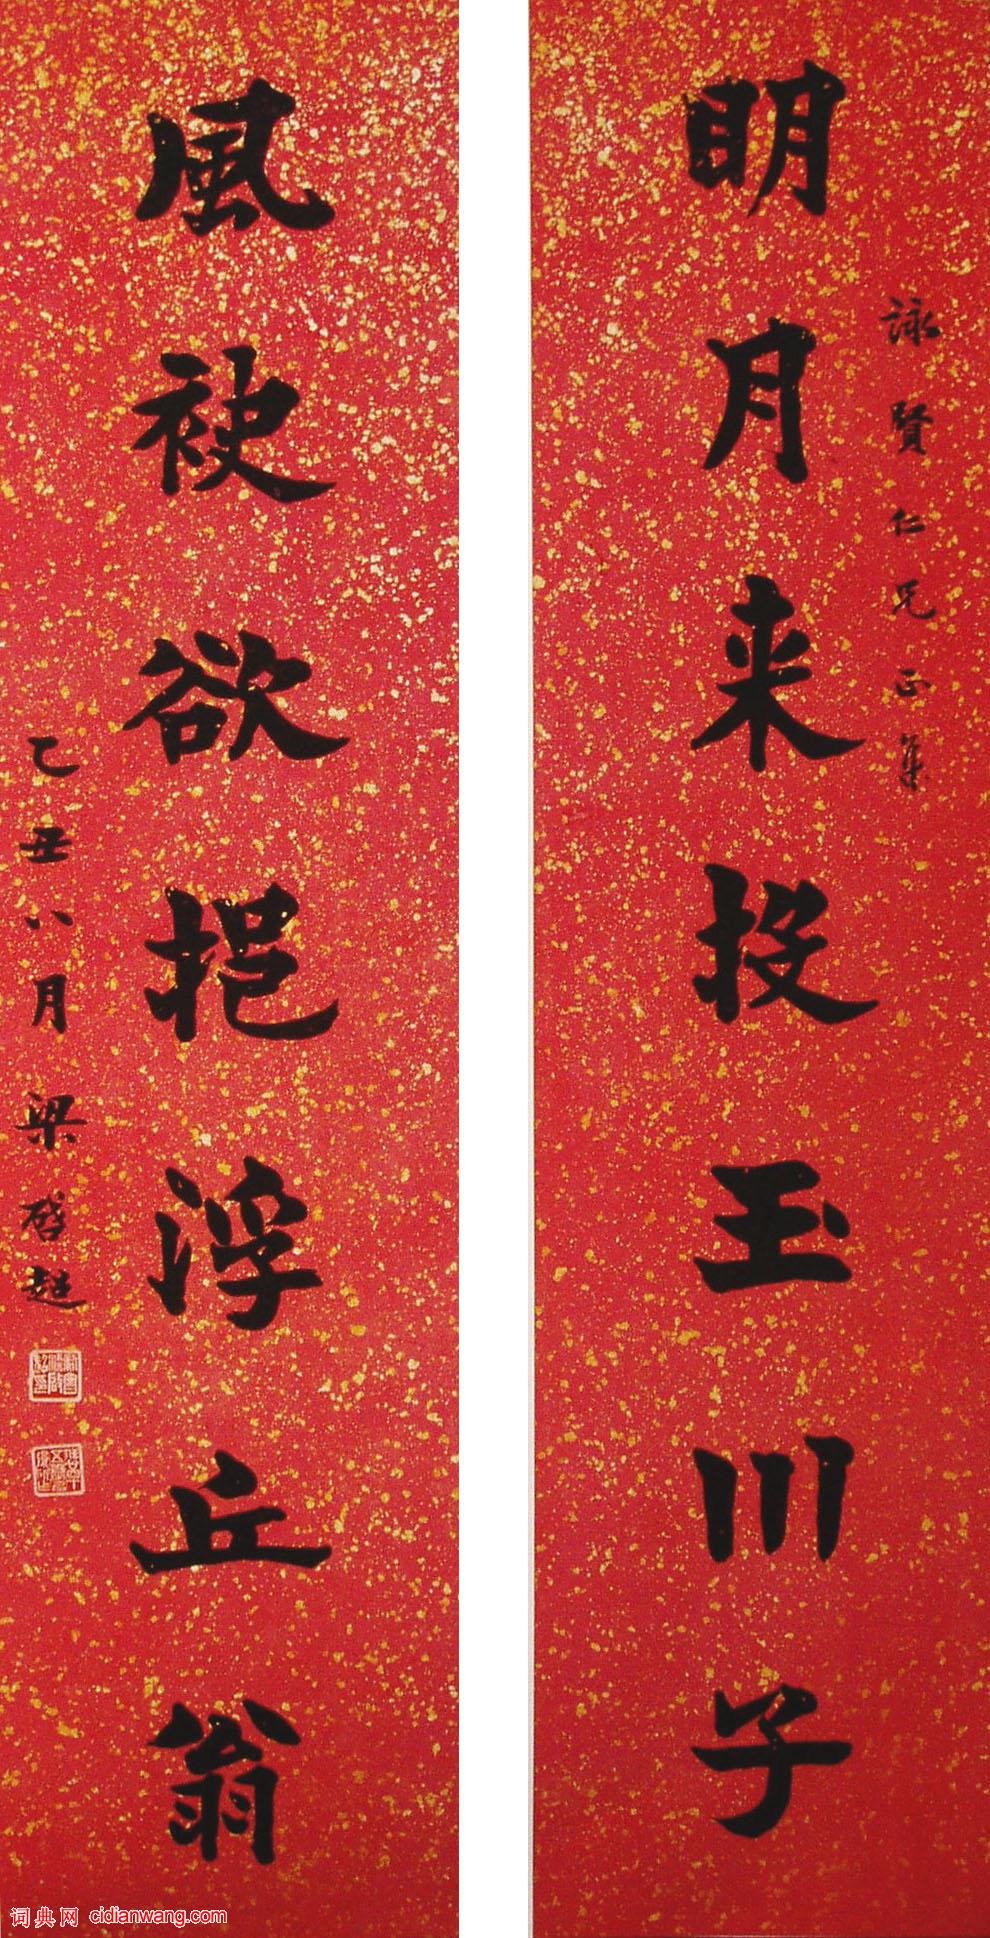 詠賢仁兄正集
明月来投玉川子
風袂欲挹浮丘翁
乙丑八月梁啓超
词典网 cidianwang.com